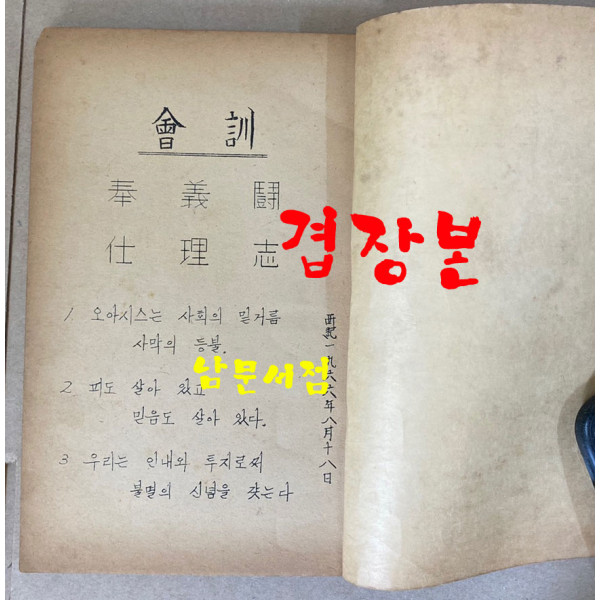 會訓
奉義鬪
仕理志
1 오아시스는 사회의 밑거름
사막의 등불.
2 피도 살아 있고
믿음도 살아 있다.
3 우리는 인내와 투지로써
불멸의 신념을 갖는다
西紀一九六六年八月十八日
겹장본
남문서점